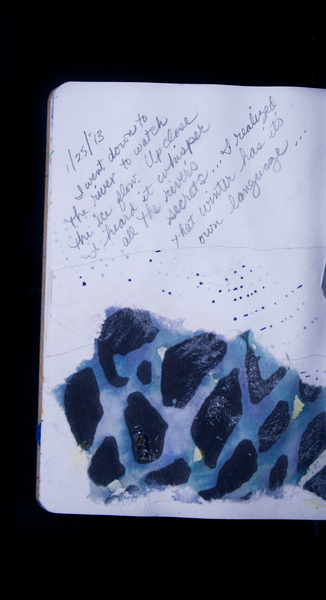 1/25/'13
I went down to
the river to watch
the ice flow. Up close
I heard it whisper
all the river's
secrets... I realized
that winter has its
own language...